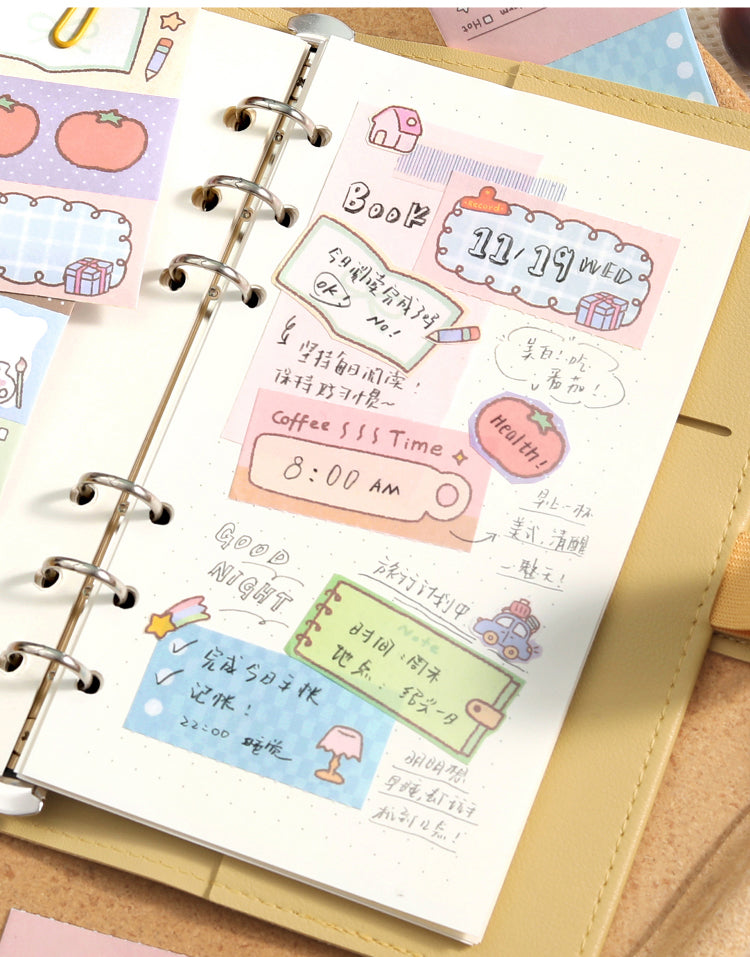 Hot
Book
Record
11/19 WED
今日阅读完成了吗
OK!
No!
坚持每日阅读!
保持好习惯~
美白!吃
番茄!
Health!
Coffee SSS Time
8:00 AM
早上一杯
美式,清醒
一整天!
GOOD
NIGHT
旅行计划中
Note
时间:周末
地点:绍兴一日
完成今日手帐
记帐!
22:00 睡觉
明明想
早睡,
机到12点!